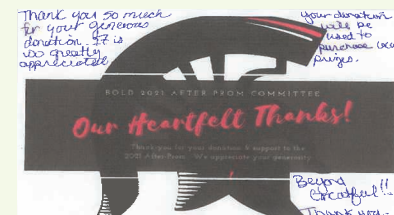 Thank you so much
for your generous
donation. It is
so greatly
appreciated
your donation
will be
used to
purchase
prizes.
BOLD 2021 AFTER PROM COMMITTEE
Our Heartfelt Thanks!
Thank you for your donation & support to the
2021 After Prom. We appreciate your generosity
Beyond
Grateful!!
Thank you